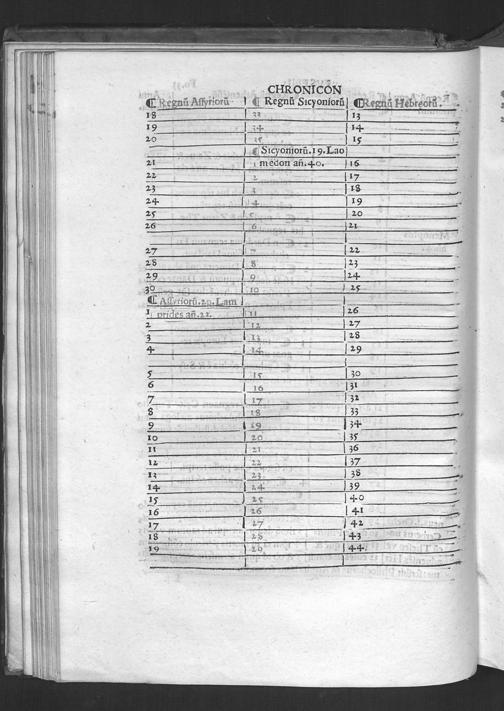 CHRONICON
¶ Regnū Assyriorū ¶ Regnū Sicyoniorū ¶ Regnū Hebreorū.
18 33 13
19 34 14
20 35 15
¶ Sicyoniorū. 19. Lao
21 1 medon añ. 40. 16
22 2 17
23 3 18
24 4 19
25 5 20
26 6 21
27 7 22
28 8 23
29 9 24
30 10 25
¶ Assyriorū. 20. Lam
1 prides añ. 32. 11 26
2 12 27
3 13 28
4 14 29
5 15 30
6 16 31
7 17 32
8 18 33
9 19 34
10 20 35
11 21 36
12 22 37
13 23 38
14 24 39
15 25 40
16 26 41
17 27 42
18 28 43
19 29 44